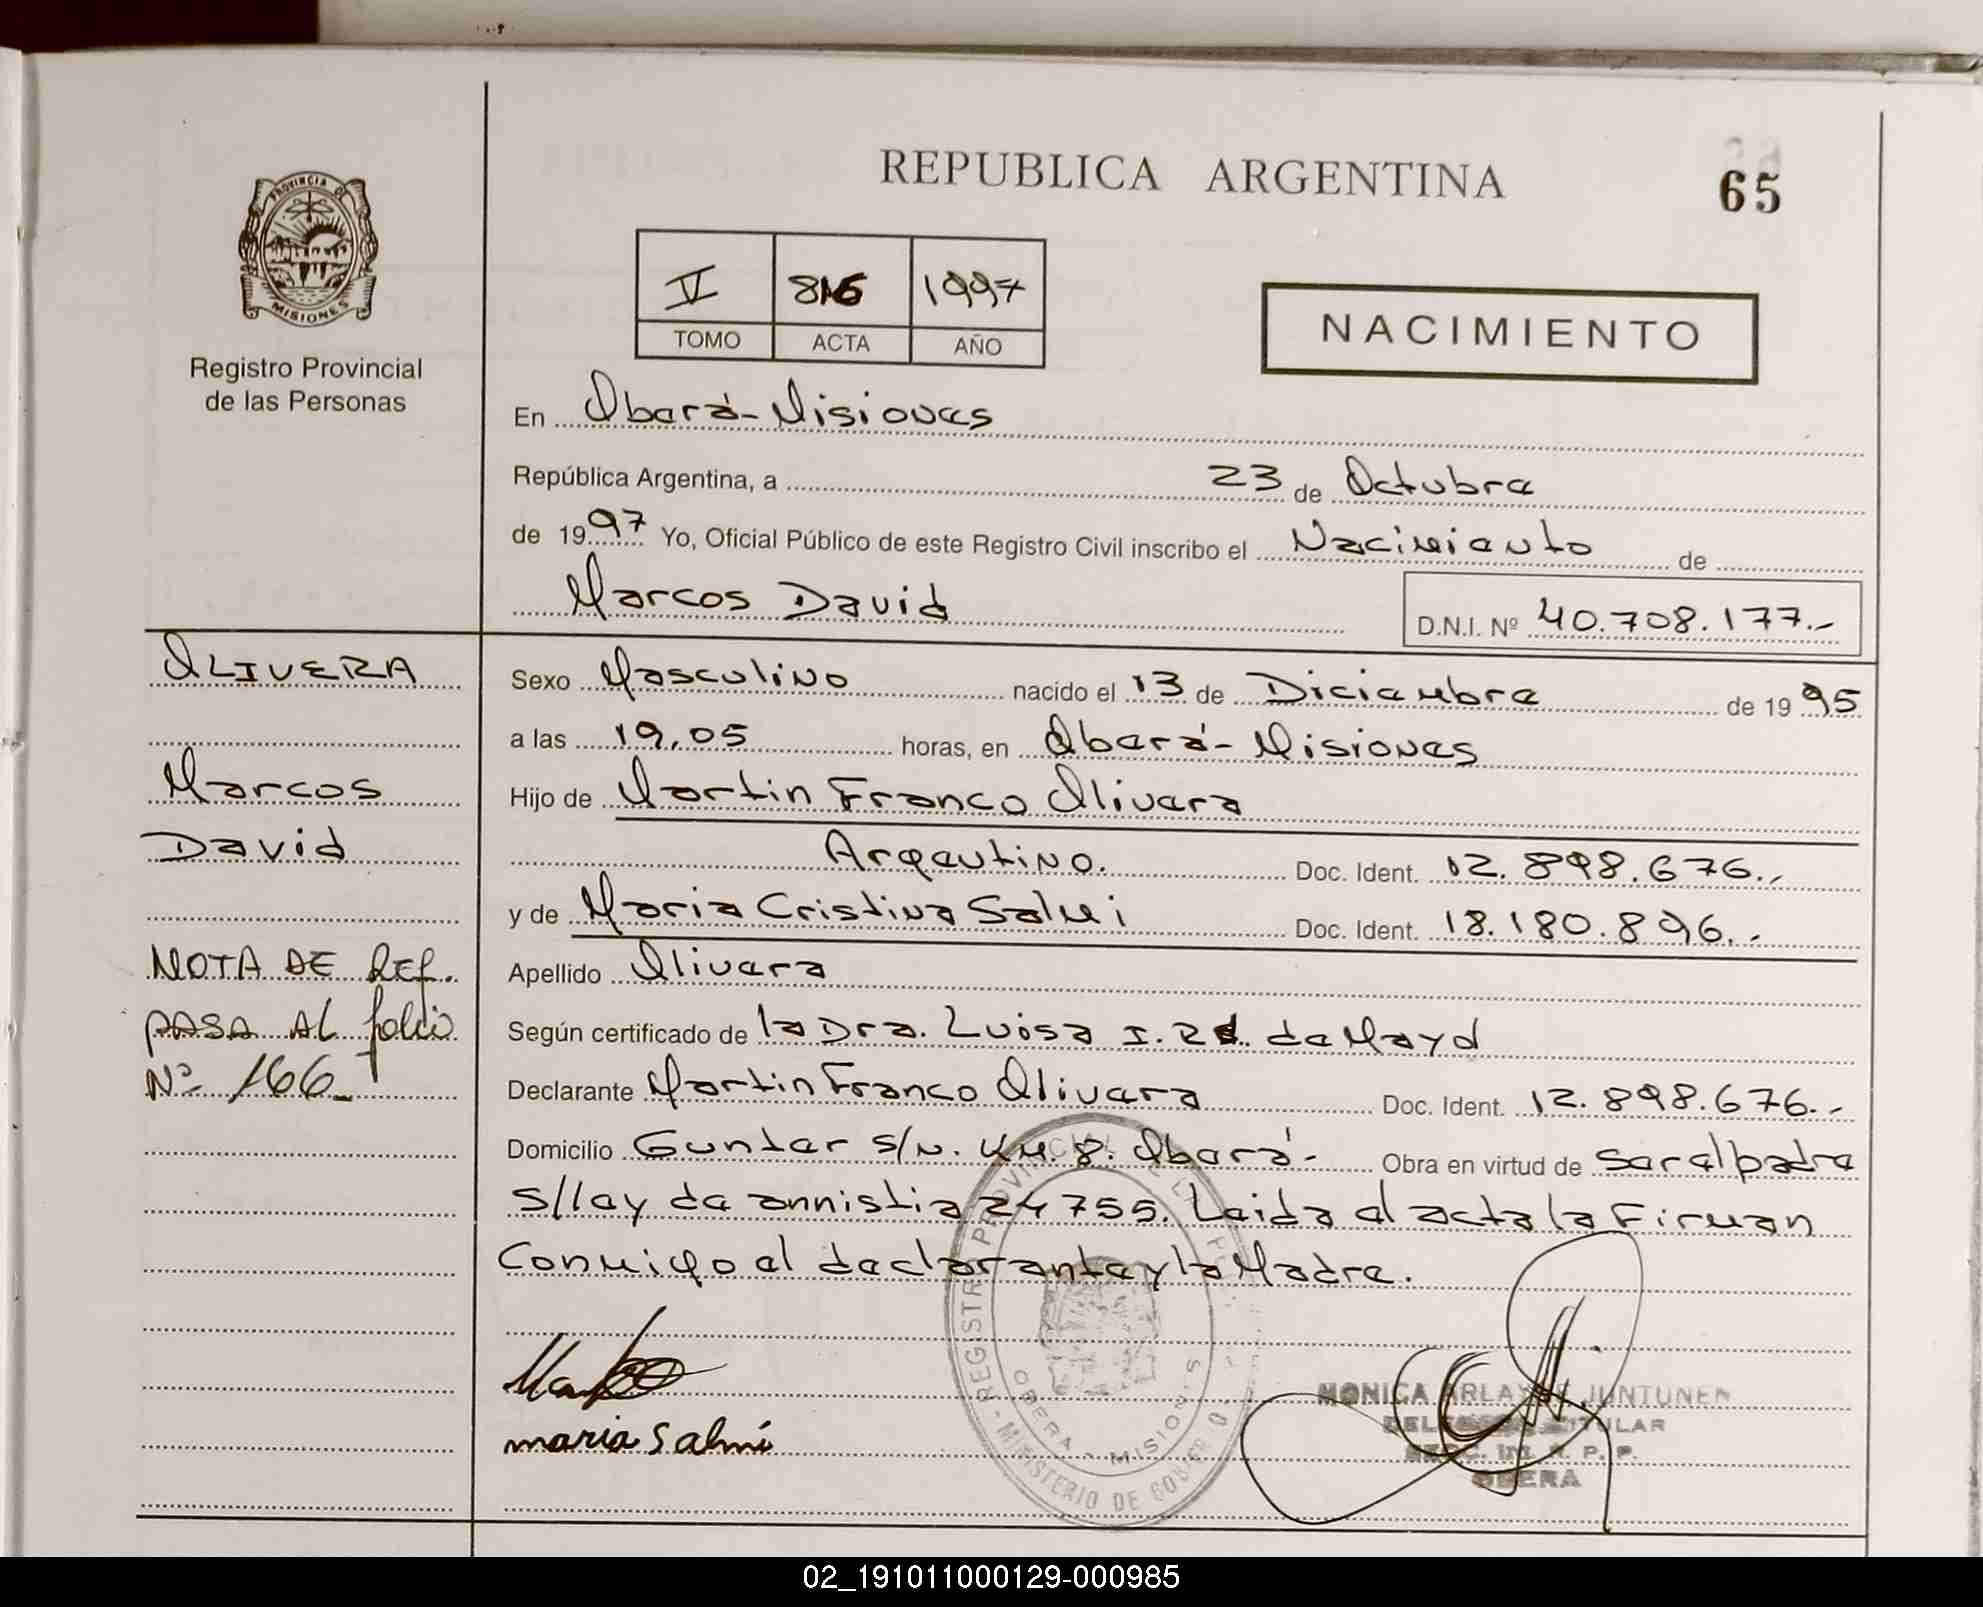 REPUBLICA ARGENTINA
65
PROVINCIA DE
MISIONES
Registro Provincial
de las Personas
V 816 1997
TOMO ACTA AÑO
NACIMIENTO
En Oberá-Misiones
República Argentina, a 23 de Octubre
de 1997 Yo, Oficial Público de este Registro Civil inscribo el Nacimiento de
Marcos David
D.N.I. Nº 40.708.177.-
OLIVERA
Marcos
David
NOTA DE REF.
PASA AL folio
Nº 166
Sexo Masculino nacido el 13 de Diciembre de 1995
a las 19,05 horas, en Oberá-Misiones
Hijo de Martin Franco Olivera
Argentino. Doc. Ident. 12.898.676.-
y de Maria Cristina Salmi Doc. Ident. 18.180.896.-
Apellido Olivera
Según certificado de la Dra. Luisa I. de Mayd
Declarante Martin Franco Olivera Doc. Ident. 12.898.676.-
Domicilio Guntar s/n. Km. 8. Oberá- Obra en virtud de ser el padre
s/ley de amnistia 24755. Leida el acta la Firman
Conmigo el declarante y la Madre.
maria Salmi
REGISTRO PROVINCIAL DE LAS
MINISTERIO DE GOBIERNO
OBERA - MISIONES
MONICA JUNTUNEN
TITULAR
R. P. P.
OBERA
02_191011000129-000985